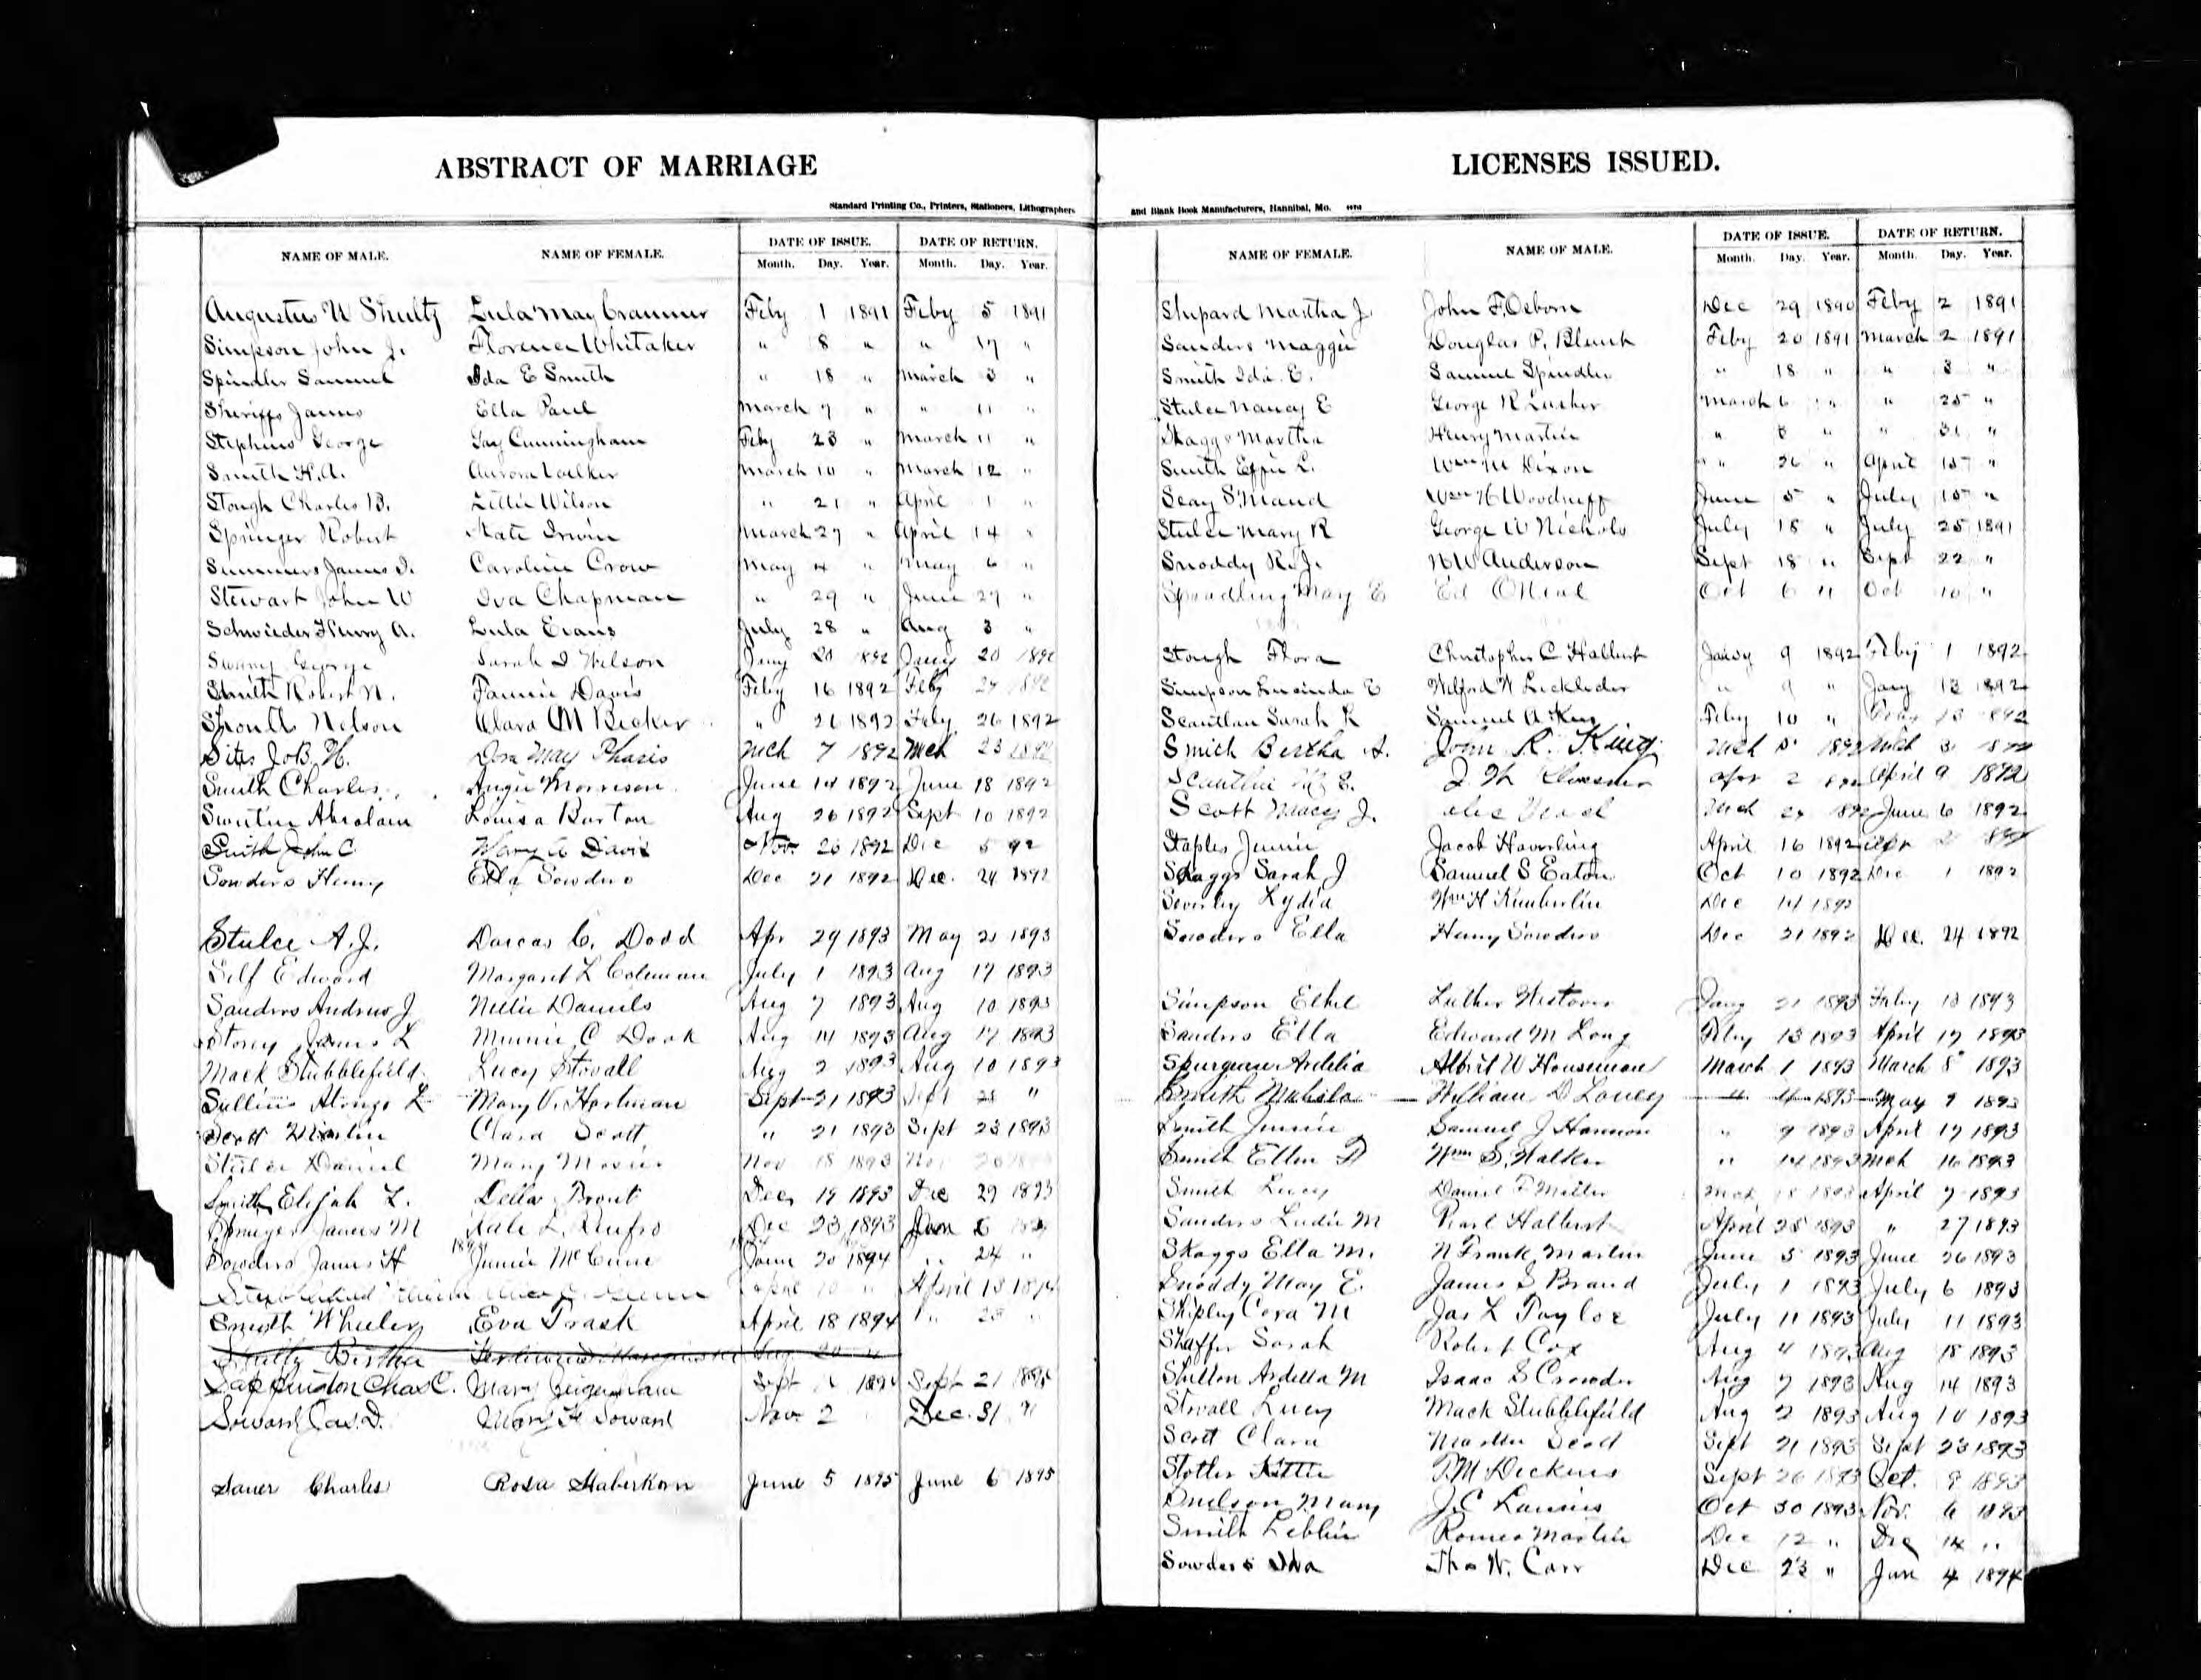 ABSTRACT OF MARRIAGE
Standard Printing Co., Printers, Stationers, Lithographers
NAME OF MALE. NAME OF FEMALE. DATE OF ISSUE. DATE OF RETURN.
Month. Day. Year. Month. Day. Year.
Augustus W Shultz Lula May Crammer Feby 1 1891 Feby 5 1891
Simpson John J. Florence Whitaker " 8 " " 17 "
Spindler Samuel Ida E Smith " 18 " March 3 "
Sheriffs James Ella Paul March 7 " " 11 "
Stephens George Gay Cunningham Feby 23 " March 11 "
Smith H.A. Aurora Walker March 10 " March 12 "
Stough Charles B. Lillie Wilson " 21 " April 1 "
Springer Robert Kate Irwin March 27 " April 14 "
Summers James I. Caroline Crow May 4 " May 6 "
Stewart John W Iva Chapman " 29 " June 27 "
Schwieder Henry A. Lula Evans July 28 " Aug 3 "
George Sarah I Wilson Jany 20 1892 Jany 20 1892
Smith Robert N. Fannie Davis Feby 16 1892 Feby 1892
Sproults Nelson Clara M Becker " 26 1892 Feby 26 1892
Sites Jo B. H. Dora May Pharis Mch 7 1892 Mch 23 1892
Smith Charles Angie Morrison June 14 1892 June 18 1892
Abraham Louisa Burton Aug 26 1892 Sept 10 1892
Smith John C Mary A Davis Nov. 20 1892 Dec 5 92
Sowders Henry Ella Sowders Dec 21 1892 Dec. 24 1892
Stulce A.J. Dorcas C. Dodd Apr 29 1893 May 21 1893
Self Edward Margaret L Coleman July 1 1893 Aug 17 1893
Sanders Andrew J Nellie Daniels Aug 7 1893 Aug 10 1893
Storey James L Minnie C Doak Aug 14 1893 Aug 17 1893
Mack Stubblefield Lucy Stovall Aug 2 1893 Aug 10 1893
Sullins Alonzo L Mary V. Hartman Sept 21 1893 Sept 28 "
Scott Martin Clara Scott " 21 1893 Sept 23 1893
Stulce Daniel Mary Nov 18 1893 Nov
Smith Elijah L. Della Prout Dec 19 1893 Dec 29 1893
Springer James M Kate L. Renfro Dec 23 1893 Jan 6
Sowders James H Jennie McCune Jan 20 1894 " 24 "
April 10 " April 13 1894
Smith Wheeler Eva Trask April 18 1894 " 25 "
Shultz Bertha
Sappington Chas C. Mary Sept 1894 Sept 21 1894
Soward Jas. D. Mary F Soward Nov. 2 Dec. 31 "
Sauer Charles Rosa Haberkorn June 5 1895 June 6 1895
LICENSES ISSUED.
and Blank Book Manufacturers, Hannibal, Mo.
NAME OF FEMALE. NAME OF MALE. DATE OF ISSUE. DATE OF RETURN.
Month. Day. Year. Month. Day. Year.
Shepard Martha J. John F. Osborn Dec 29 1890 Feby 2 1891
Sanders Maggie Douglas P. Blunk Feby 20 1891 March 2 1891
Smith Ida E. Samuel Spindler " 18 " " 3 "
Stulce Nancy E George R Lusher March 6 " " 25 "
Skaggs Martha Henry Martin " 8 " " 31 "
Smith Effie L. Wm M Dixon " 26 " April 15 "
Seay S Maud Wm H Woodruff June 5 " July 15 "
Stulce Mary R George W Nichols July 18 " July 25 1891
Snoddy R.J. N W Anderson Sept 18 " Sept 22 "
Spradling May E Ed ONeal Oct 6 " Oct 10 "
Stough Flora Christopher C Halbert Jany 9 1892 Feby 1 1892
Simpson Lucinda E Wilford W Lickleder " 9 " Jany 13 1892
Scantlan Sarah K Samuel A King Feby 10 " 13 1892
Smith Bertha A. John R. King Mch 1892 Mch 1892
E. Apr 2 April 9 1892
Scott Macy J. Mch 1892 June 6 1892
Staples Jennie Jacob Haverling April 16 1892 Apr
Skaggs Sarah J Samuel S Eaton Oct 10 1892 Dec 1 1892
Lydia Wm H Kimberlin Dec 14 1892
Sowders Ella Henry Sowders Dec 21 1892 Dec. 24 1892
Simpson Ethel Luther Westover Jany 21 1893 Feby 13 1893
Sanders Ella Edward M Long Feby 13 1893 April 17 1893
Spurgeon Ardelia Albert W Houseman March 1 1893 March 8 1893
Smith Mahala William D Loucy " 4 1893 May 9 1893
Smith Jennie Samuel J Harmon " 9 1893 April 17 1893
Smith Ellen F Wm S. Walker " 14 1893 Mch 16 1893
Smith Lucy Daniel F Miller Mch 18 1893 April 7 1893
Sanders Ludie M Pearl Halbert April 25 1893 " 27 1893
Skaggs Ella M. N Frank Martin June 5 1893 June 26 1893
Snoddy May E. James S Brand July 1 1893 July 6 1893
Shipley Cora M Jas L Taylor July 11 1893 July 11 1893
Shaffer Sarah Robert Cox Aug 4 1893 Aug 18 1893
Shelton Ardella M Isaac S Crowder Aug 7 1893 Aug 14 1893
Stovall Lucy Mack Stubblefield Aug 2 1893 Aug 10 1893
Scott Clara Martin Scott Sept 21 1893 Sept 23 1893
Stotler Kittie T.M. Dickens Sept 26 1893 Oct. 9 1893
Mary J.C. Oct 30 1893 Nov. 6 1893
Smith Romeo Martin Dec 12 " Dec 14 "
Sowders Ida Tho W. Carr Dec 23 " Jan 4 1894